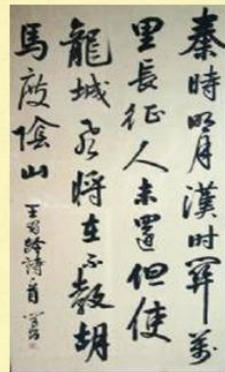 秦時明月漢時關萬
里長征人未還但使
龍城飛將在不教胡
馬度陰山
王昌齡詩一首